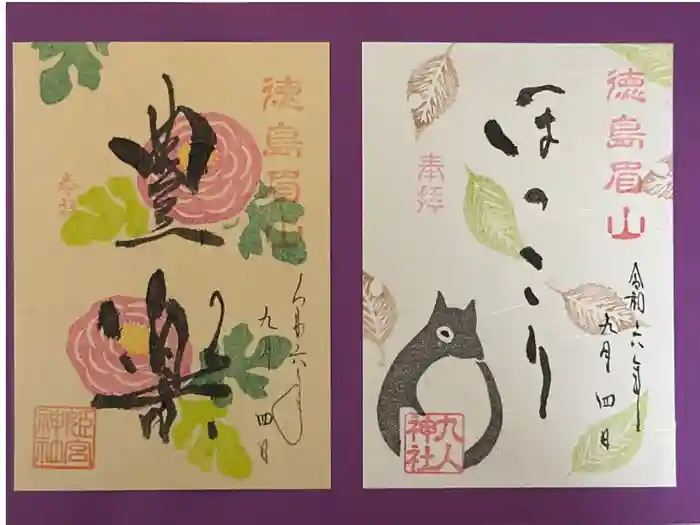 徳島眉山
奉拝
豊
令和六年
九月四日
姫宮
神社
徳島眉山
奉拝
ほっこり
令和六年
九月四日
九人
神社